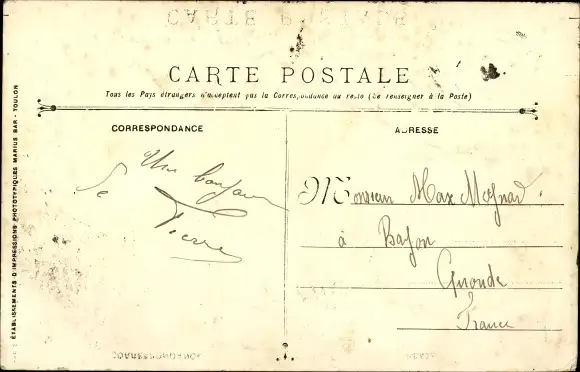 CARTE POSTALE
Tous les Pays étrangers n'acceptent pas la Correspondance au recto (Se renseigner à la Poste)
CORRESPONDANCE
Un bonjour
de
Pierre
ADRESSE
Monsieur Max
à Bayon
Gironde
France
ÉTABLISSEMENTS D'IMPRESSIONS PHOTOTYPIQUES MARIUS BAR - TOULON